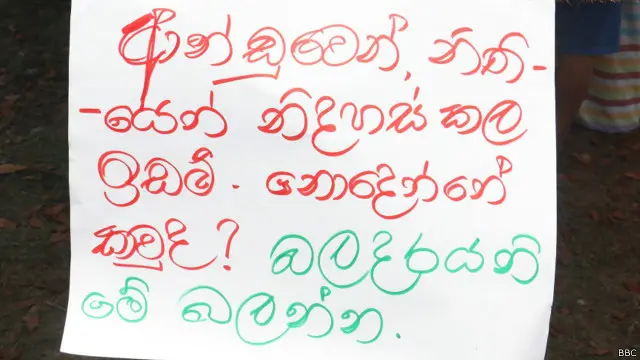 ආන්ඩුවෙන්, නීති-
-යෙන් නිදහස් කල
ඉඩම්. නොදෙන්නේ
කවුද? බලදරයනි
මේ බලන්න.
BBC